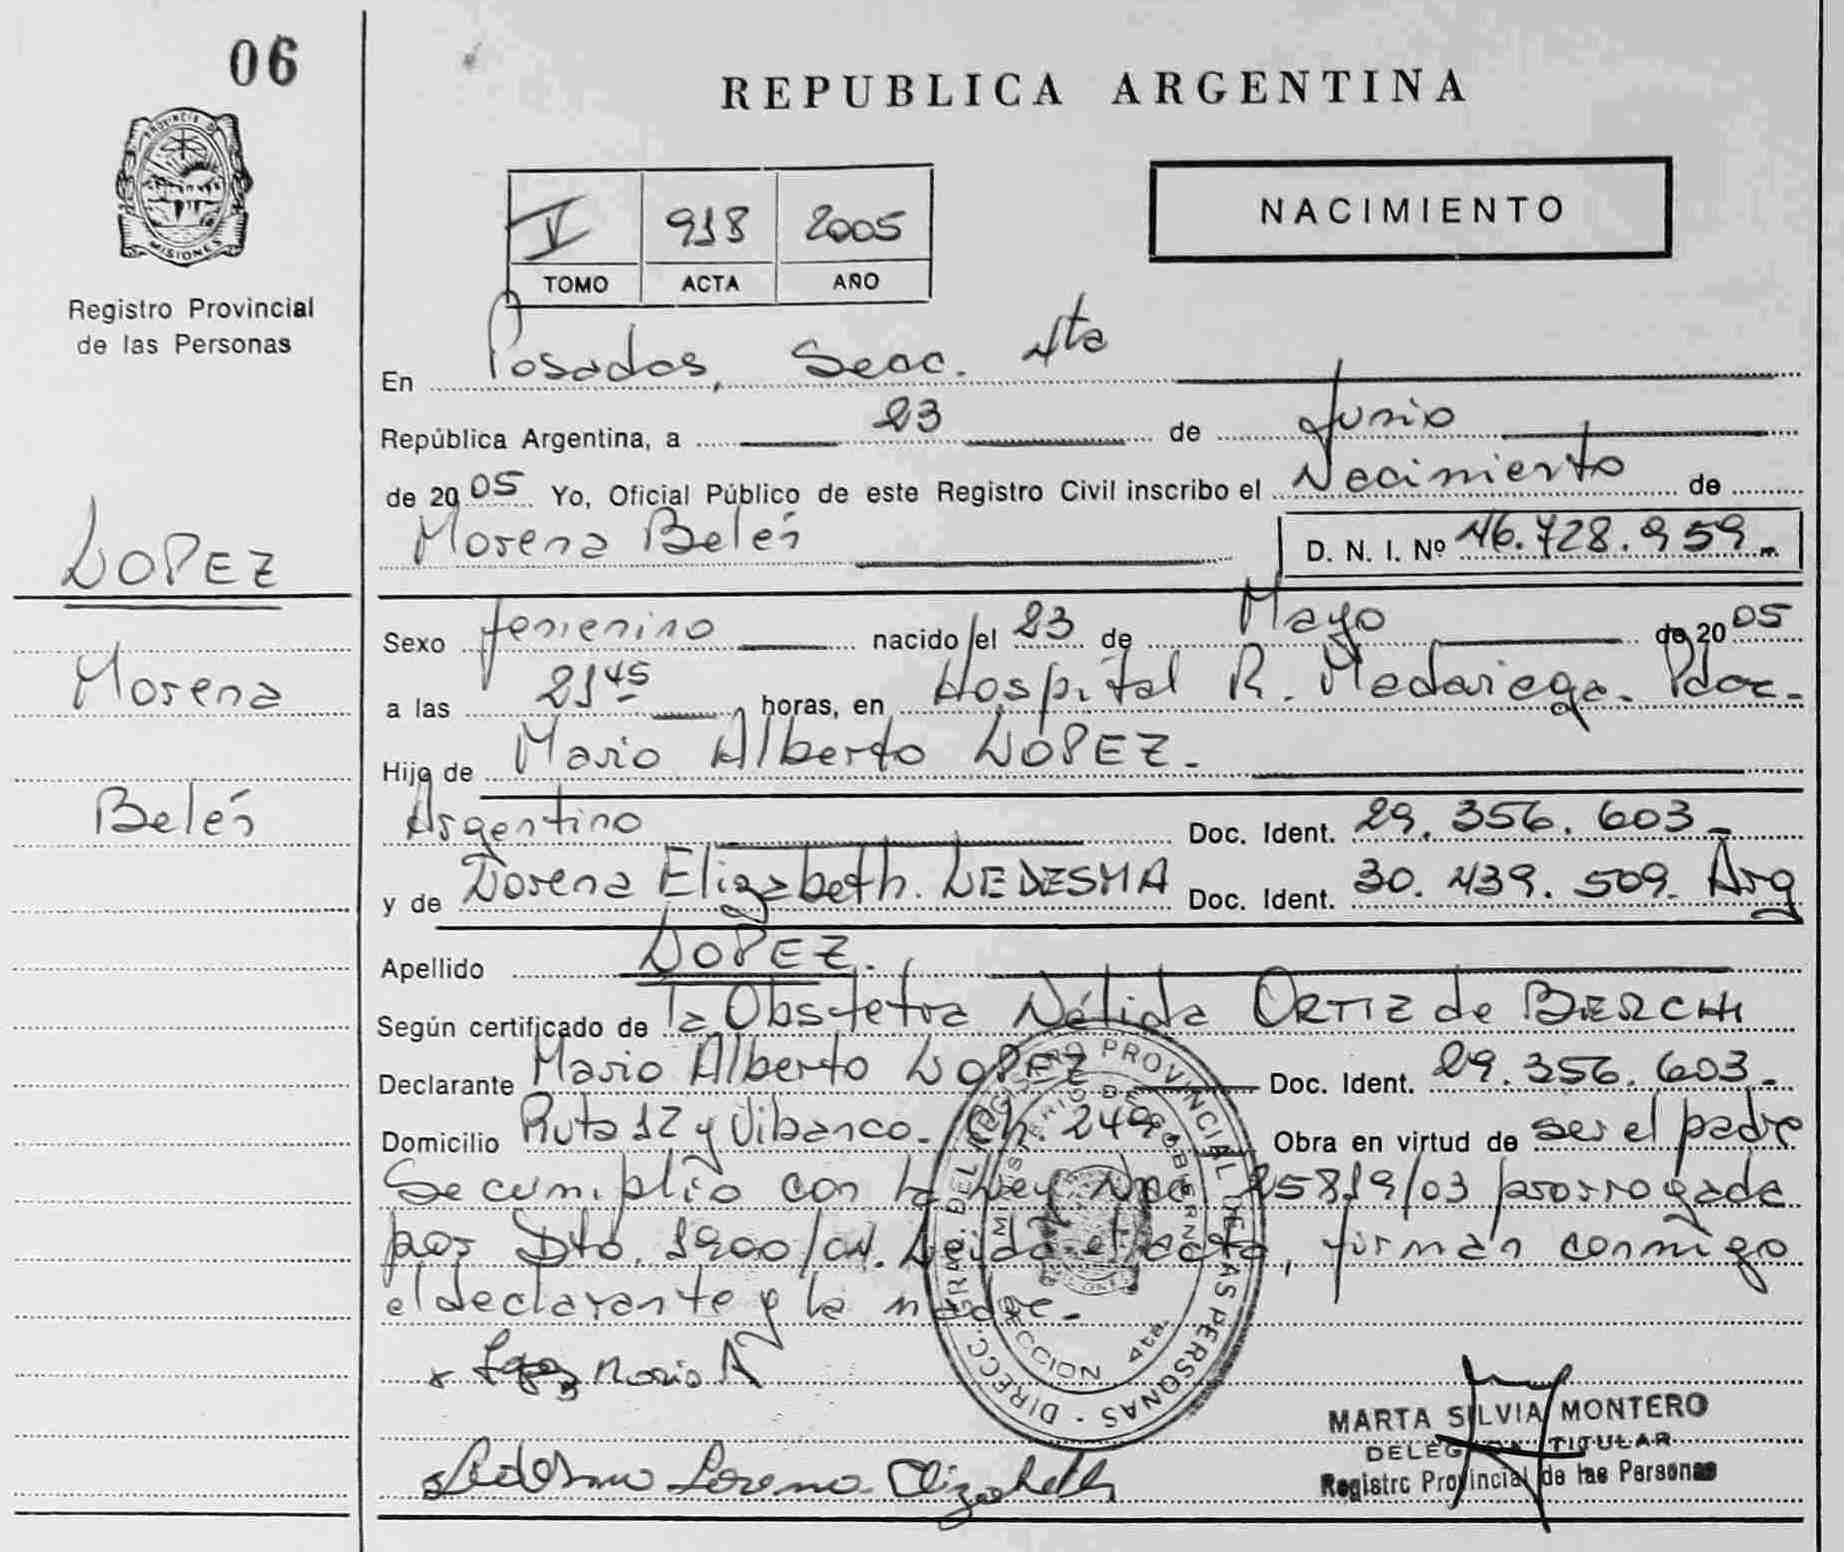 06
PROVINCIA DE
MISIONES
Registro Provincial
de las Personas
LOPEZ
Morena
Belén
REPUBLICA ARGENTINA
V 918 2005
TOMO ACTA AÑO
NACIMIENTO
En Posadas, Secc. 4ta
República Argentina, a 23 de Junio
de 2005 Yo, Oficial Público de este Registro Civil inscribo el Nacimiento de
Morena Belén D. N. I. Nº 46.728.959.-
Sexo femenino nacido el 23 de Mayo de 2005
a las 21 45 horas, en Hospital R. Madariaga. Pdas.-
Hijo de Mario Alberto LOPEZ.-
Argentino Doc. Ident. 29.356.603.-
y de Lorena Elizabeth. LEDESMA Doc. Ident. 30.439.509. Arg
Apellido LOPEZ.
Según certificado de la Obstetra Nélida ORTIZ de BIERCHI
Declarante Mario Alberto LOPEZ Doc. Ident. 29.356.603.-
Domicilio Ruta 12 y Vibanco. Ch. 249. Obra en virtud de ser el padre
Se cumplió con la Ley Nro 25819/03 prorrogada
por Dto. 1900/04. Leida el acta, firman conmigo
el declarante y la madre.-
Lopez Mario A
Ledesma Lorena Elizabeth
DIRECC. GRAL. DEL REGISTRO PROVINCIAL DE LAS PERSONAS
MINISTERIO DE GOBIERNO
SECCION 4ta.
MARTA SILVIA MONTERO
DELEGADA TITULAR
Registro Provincial de las Personas